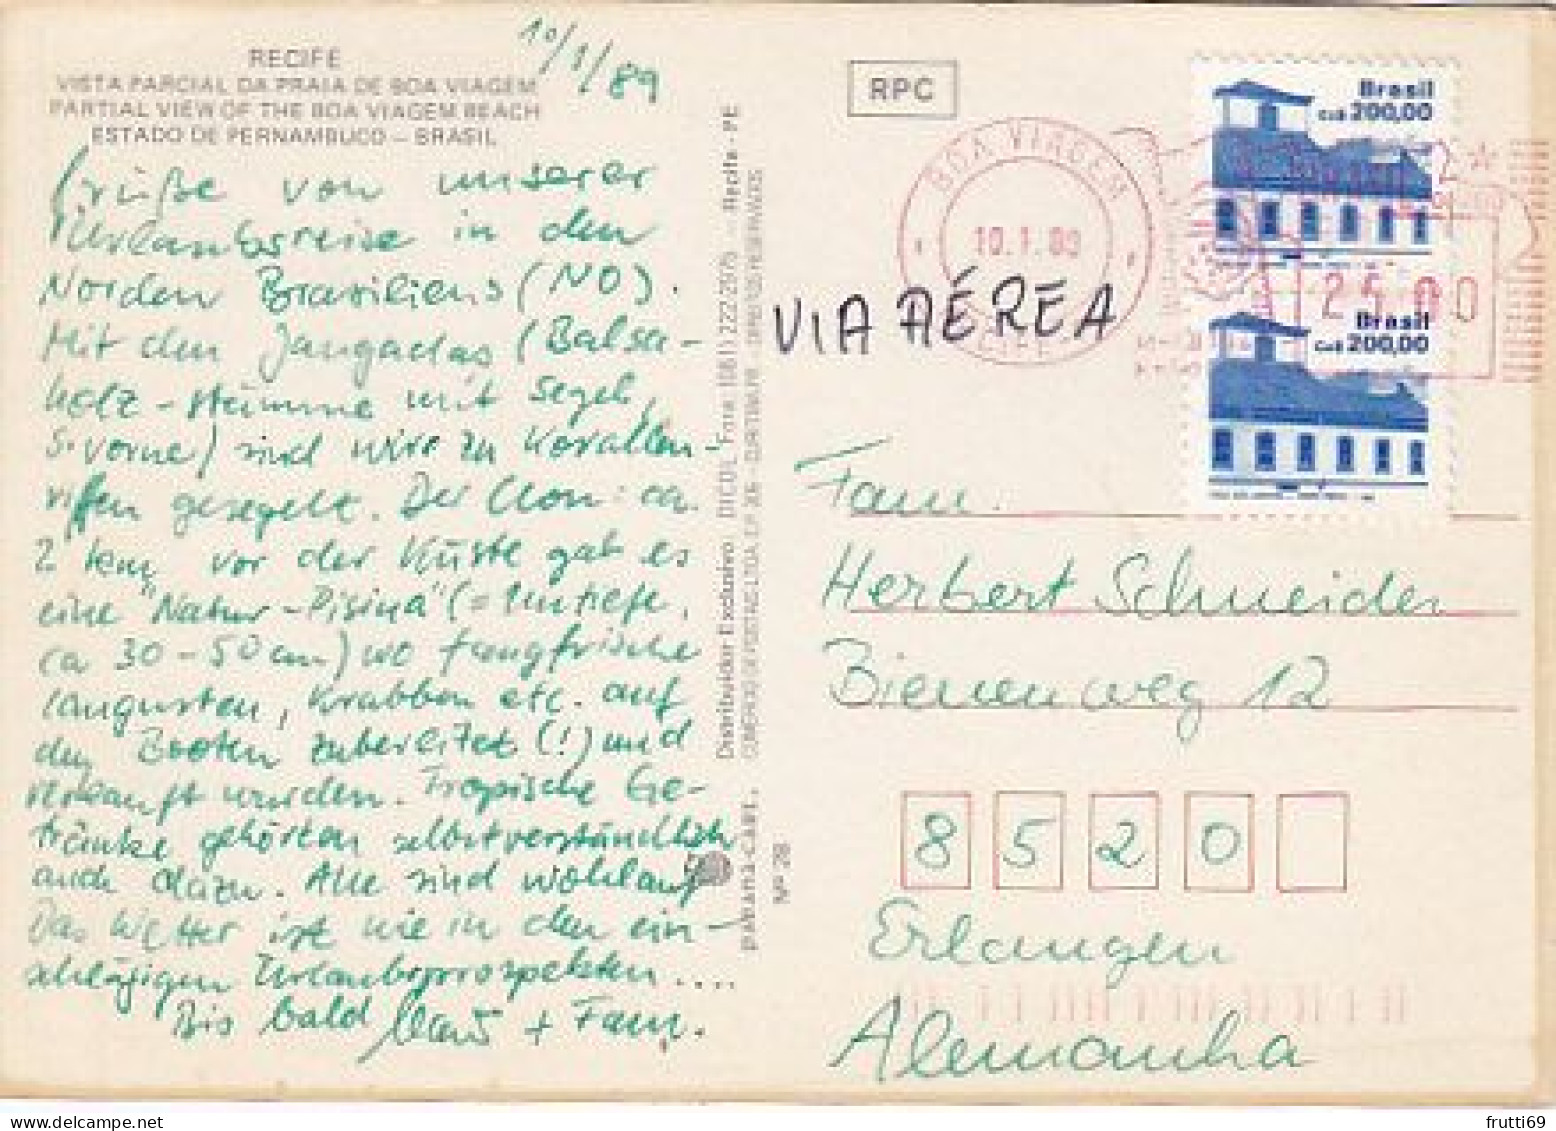 10/1/89
RECIFE
VISTA PARCIAL DA PRAIA DE BOA VIAGEM
PARTIAL VIEW OF THE BOA VIAGEM BEACH
ESTADO DE PERNAMBUCO - BRASIL
Grüße von unserer
Urlaubsreise in den
Norden Brasiliens (NO).
Mit den Jangadas (Balsa-
holz-stämme mit Segel,
s. vorne) sind wir zu Korallen-
riffen gesegelt. Der Clou: ca.
2 km vor der Küste gab es
eine "Natur-Pisina" (= Untiefe,
ca 30-50 cm) wo fangfrische
Langusten, Krabben etc. auf
den Booten zubereitet (!) und
verkauft wurden. Tropische Ge-
tränke gehörten selbstverständlich
auch dazu. Alle sind wohlauf
Das Wetter ist wie in den ein-
schlägigen Urlaubsprospekten....
Bis bald + Fam.
Distribuidor Exclusivo: Recife - PE
paraná-cart.
Nº 28
RPC
BOA VIAGEM
10.1.89
2500
Brasil
Cz$ 200,00
Brasil
Cz$ 200,00
VIA AÉREA
Fam.
Herbert Schneider
Bienenweg 12
8520
Erlangen
Alemanha
frutti69